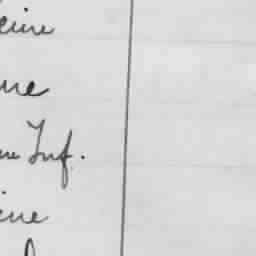 eine
ne
ne Inf.
ine